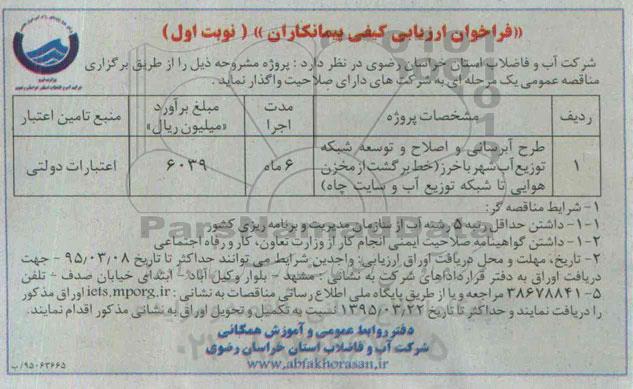 «فراخوان ارزیابی کیفی پیمانکاران» ( نوبت اول )
شرکت آب و فاضلاب استان خراسان رضوی در نظر دارد : پروژه مشروحه ذیل را از طریق برگزاری
مناقصه عمومی یک مرحله ای به شرکت های دارای صلاحیت واگذار نماید.
ردیف مشخصات پروژه مدت اجرا مبلغ برآورد «میلیون ریال» منبع تامین اعتبار
۱ طرح آبرسانی و اصلاح و توسعه شبکه
توزیع آب شهر باخرز (خط برگشت از مخزن
هوایی تا شبکه توزیع آب و سایت چاه)
۶ ماه ۶۰۳۹ اعتبارات دولتی
۱- شرایط مناقصه گر:
۱-۱- داشتن حداقل رتبه ۵ رشته آب از سازمان مدیریت و برنامه ریزی کشور
۱-۲- داشتن گواهینامه صلاحیت ایمنی انجام کار از وزارت تعاون، کار و رفاه اجتماعی
۲- تاریخ، مهلت و محل دریافت اوراق ارزیابی: واجدین شرایط می توانند حداکثر تا تاریخ ۹۵/۰۳/۰۸ - جهت
دریافت اوراق به دفتر قراردادهای شرکت به نشانی : مشهد - بلوار وکیل آباد - ابتدای خیابان صدف - تلفن
۵-۳۸۶۷۸۸۴۱ مراجعه و یا از طریق پایگاه ملی اطلاع رسانی مناقصات به نشانی : iets.mporg.ir اوراق مذکور
را دریافت نمایند و حداکثر تا تاریخ ۱۳۹۵/۰۳/۲۲ نسبت به تکمیل و تحویل اوراق به نشانی مذکور اقدام نمایند.
دفتر روابط عمومی و آموزش همگانی
شرکت آب و فاضلاب استان خراسان رضوی
www.abfakhorasan.ir
۹۵۰۶۳۶۶۵/ب
ParsNamadData